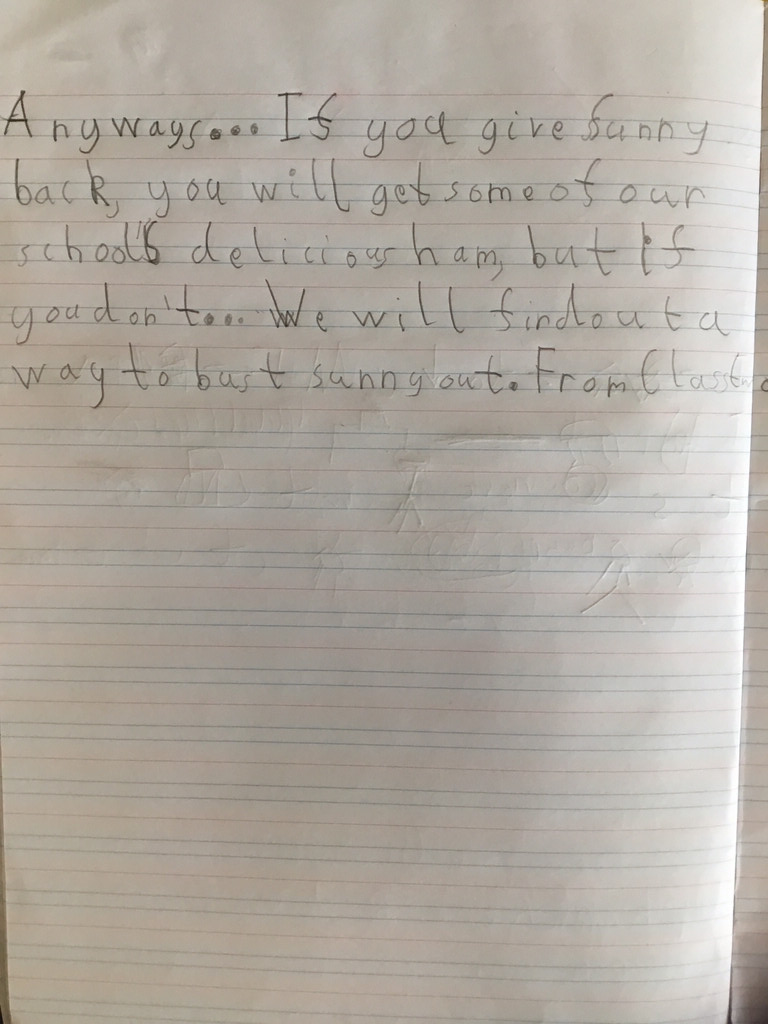 Anyways... If you give Sunny
back, you will get some of our
school's delicious ham, but If
you don't... We will find out a
way to bust sunny out. From